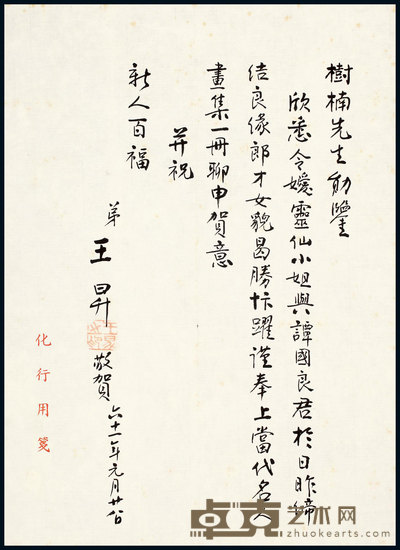 樹楠先生勛鑒
欣悉令嬡靈仙小姐與譚國良君於日昨締
結良緣郎才女貌曷勝忭躍謹奉上當代名人
畫集一冊聊申賀意
并祝
新人百福
弟
王昇
敬賀
六十一年元月廿八日
化行用箋
卓克艺术网
www.zhuokearts.com